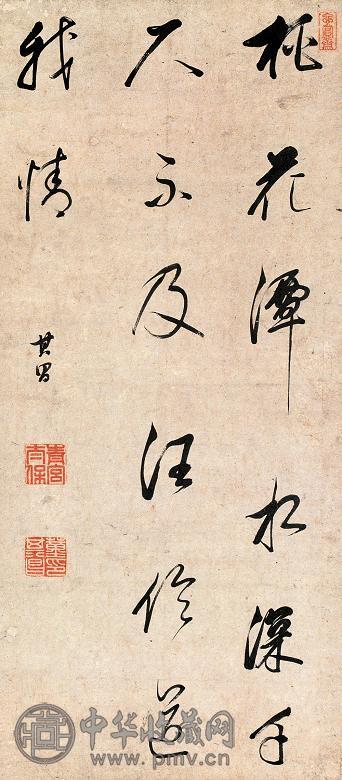 桃花潭水深千
尺不及汪倫送
我情
其昌
青宮太保
中华收藏网
www.pmv.cn